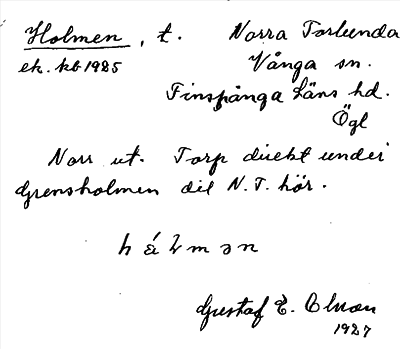 Holmen, t. Norra Torlunda
ek. kb 1925 Vånga sn.
Finspånga Läns hd.
Ögl
Norr ut. Torp direkt under
Grensholmen dit N. T. hör.
hólmən
Gustaf E. Olson
1927